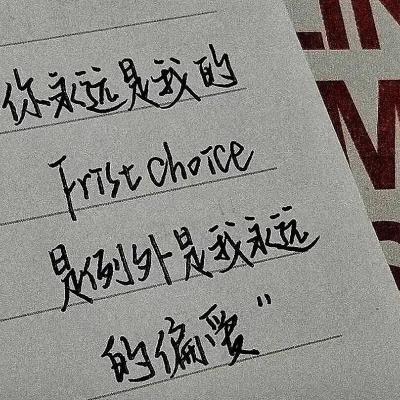 你永远是我的
Frist choice
是例外是我永远
的偏爱"